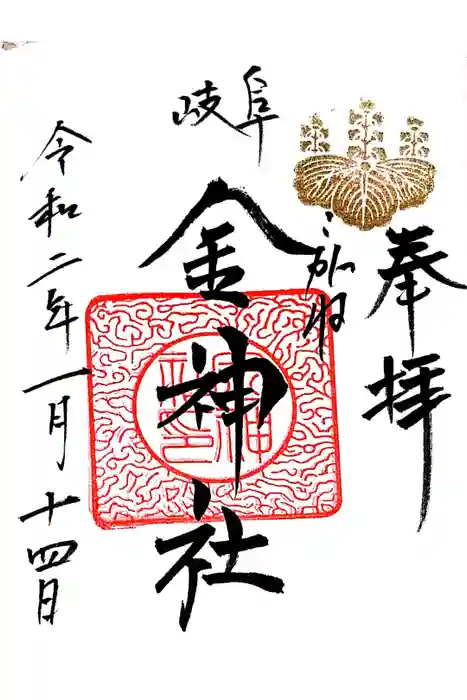 奉拝
岐阜
こがね
金神社
令和二年一月十四日